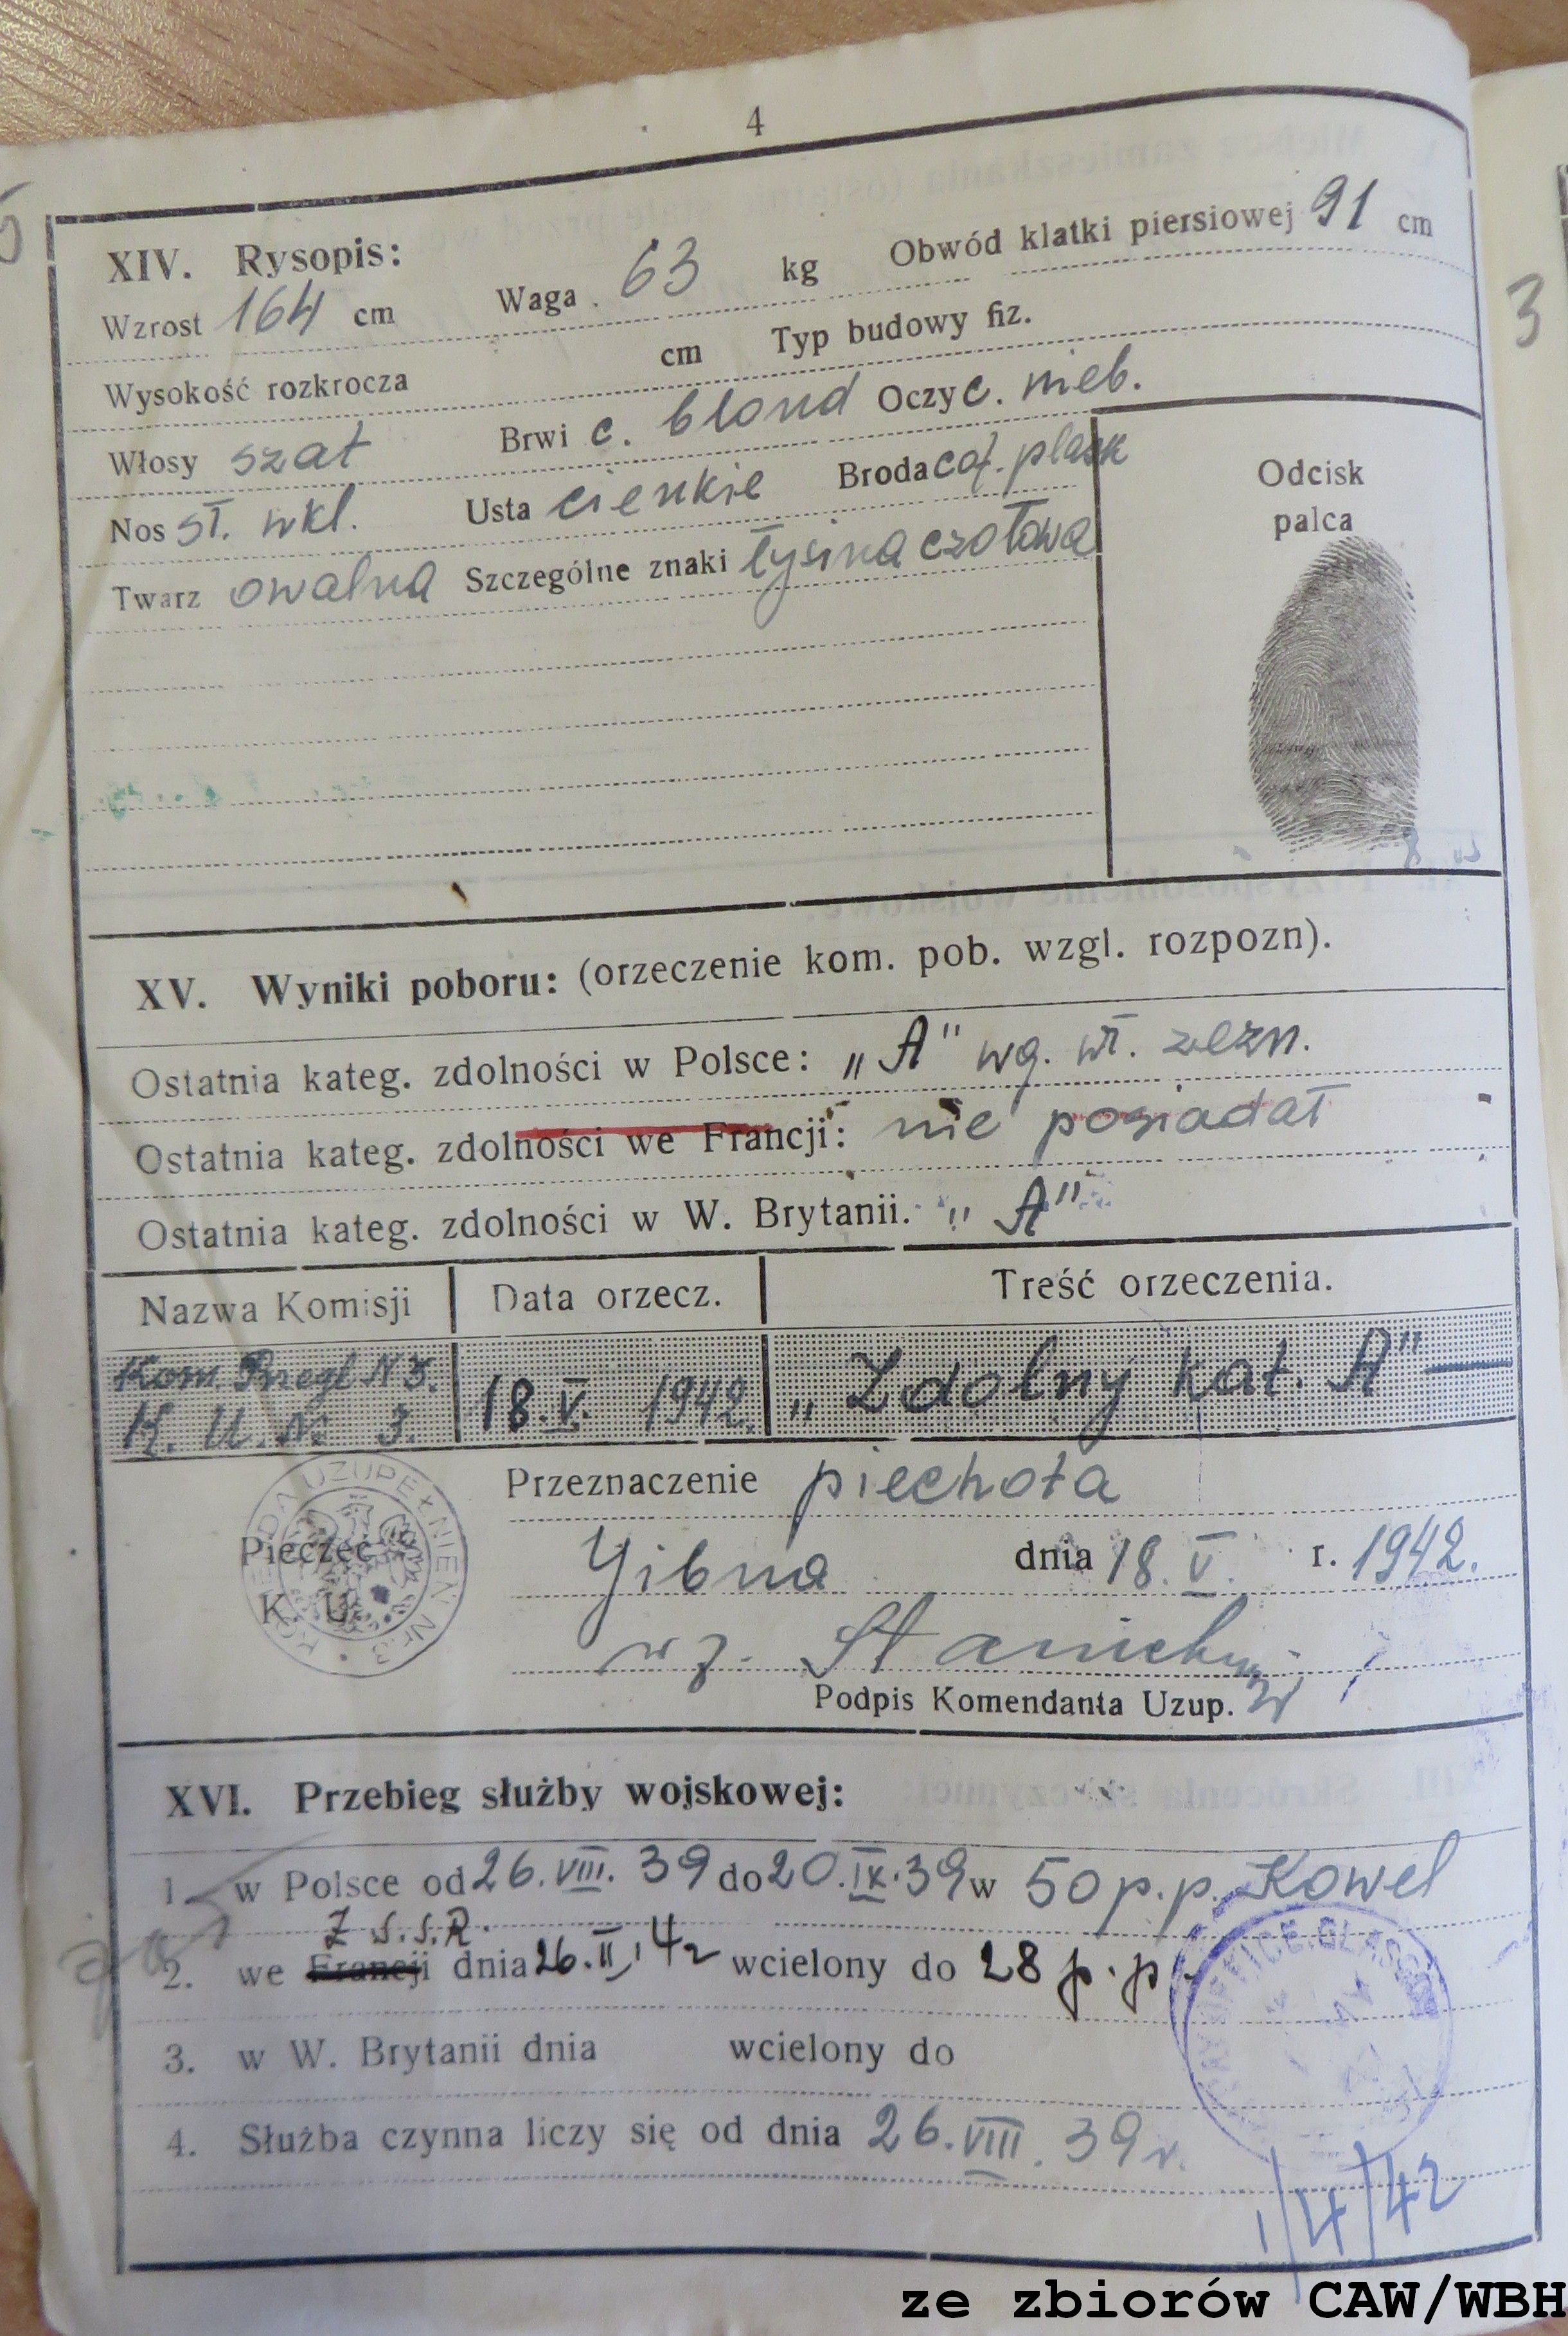 4
XIV. Rysopis:
Wzrost 164 cm Waga 63 kg Obwód klatki piersiowej 91 cm
Wysokość rozkrocza cm Typ budowy fiz.
Włosy szat Brwi c. blond Oczy c. nieb.
Nos śr. wkl. Usta cienkie Broda cof. płask
Twarz owalna Szczególne znaki łysina czołowa
Odcisk
palca
XV. Wyniki poboru: (orzeczenie kom. pob. wzgl. rozpozn).
Ostatnia kateg. zdolności w Polsce: „A" wg. wł. zezn.
Ostatnia kateg. zdolności we Francji: nie posiadał
Ostatnia kateg. zdolności w W. Brytanii. „A"
Nazwa Komisji Data orzecz. Treść orzeczenia.
Kom. Przegl N 3.
K. U. Nr 3. 18. V. 1942. „Zdolny kat. A" —
Przeznaczenie piechota
KOMENDA UZUPEŁNIEŃ Nr. 3
Pieczęć
K. U.
Yibna dnia 18. V. r. 1942.
wz.
Podpis Komendanta Uzup.
XVI. Przebieg służby wojskowej:
1. w Polsce od 26. VIII. 39 do 20. IX. 39 w 50 p.p. Kowel
Z S.S.R.
2. we Francji dnia 26. II. 42 wcielony do 28 p.p.
3. w W. Brytanii dnia wcielony do
4. Służba czynna liczy się od dnia 26. VIII. 39 r.
OFFICE. GLASGOW
1/4/42
3
ze zbiorów CAW/WBH